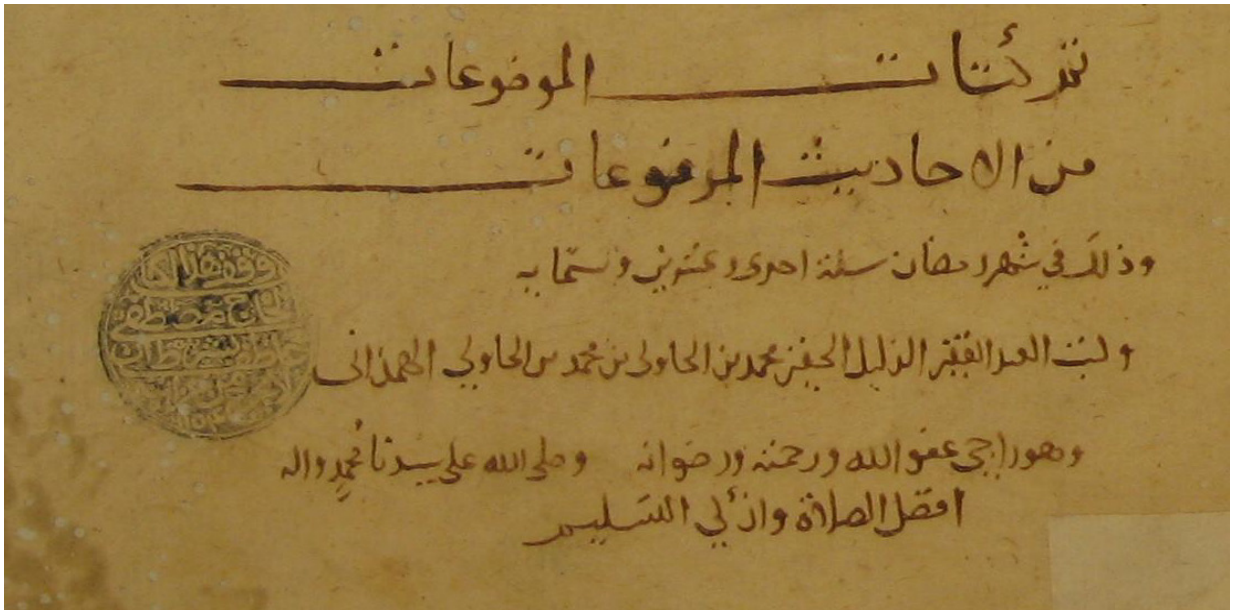 تم كتاب الموضوعات
من الاحاديث المرفوعات
وذلك في شهر رمضان سنة احدى وعشرين وستمايه
وكتب العبد الفقير الذليل الحقير محمد بن الحاولي بن محمد بن الحاولي الهمذاني
وهو راجي عفو الله ورحمته ورضوانه وصلى الله على سيدنا محمد واله
افضل الصلاة وازكي التسليم
وقف هذا
الحاج مصطفى